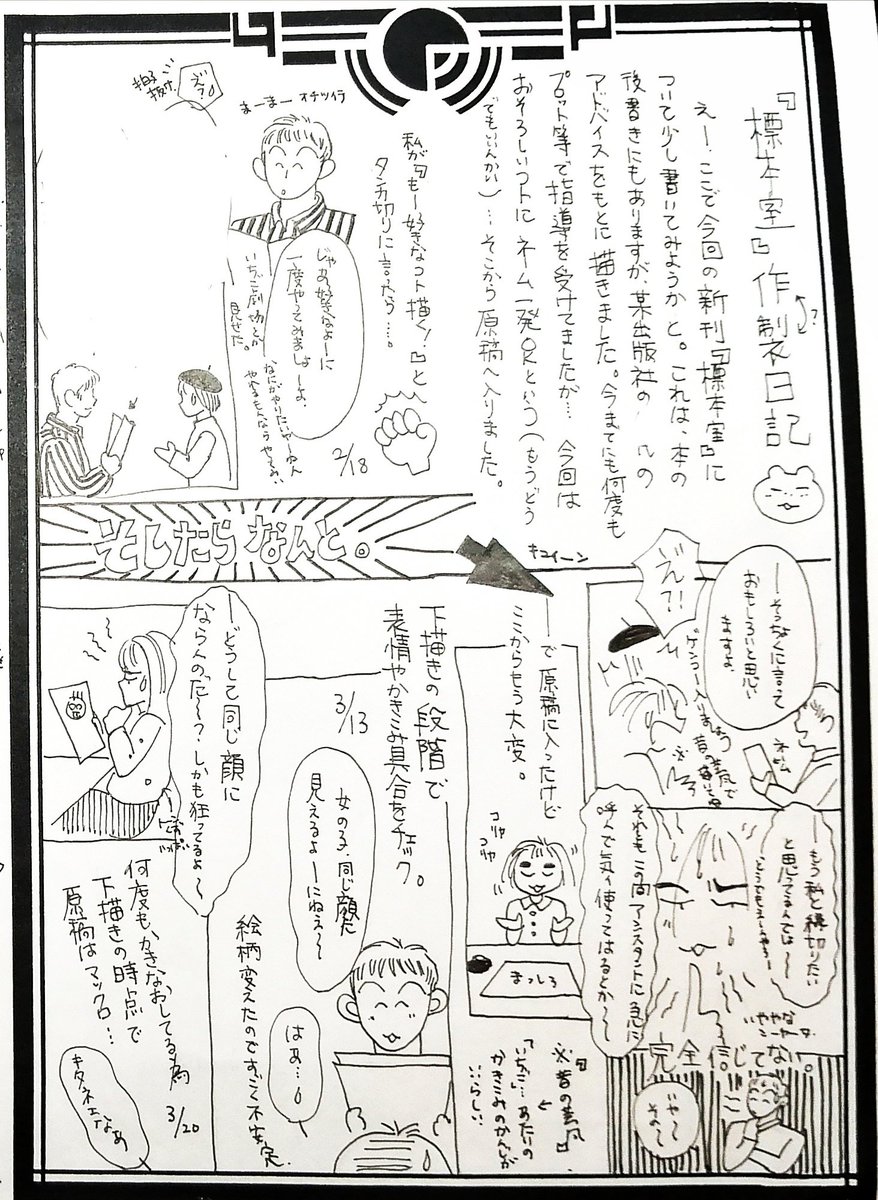 『標本室』作製日記
?
えー、ここで今回の新刊『標本室』に
ついて少し書いてみようかと。これは、本の
後書きにもありますが、某出版社の
ルの
アドバイスをもとに描きました。今までにも何度も
プロット等で指導を受けてましたが…今回は
おそろしいコトにネーム一発OKという（もうどう
でもいいんかい）…そこから原稿へ入りました。
私が『もー好きなコト描く！』と
タンカ切りに言ったら…。
まーまー
オチツイテ
じゃあ好きなよーに
一度やってみましょーよ、
2/18
見せた。
え?
拍子
抜け
そしたらなんと。
キュイーン
ーそうなくに言って
おもしろいと思い
ますよ
えっ?!
ネーム
ーもう私と縁切りたい
と思ってるんでは〜〜
それともこの間アシスタントに急に
呼んで気ィ使ってはるとか〜〜
完全信じてない。
いや〜
その〜
ーで原稿に入ったけど
ここからもう大変。
コリャ
コリャ
まっしろ
※『昔の美風』
『いちご…』あたりの
かきこみのかんじが
…らしい。
下描きの段階で
表情やかきこみ具合をチェック。
3/13
女の子、同じ顔に
見えるよーにねえ〜〜
はあ…
絵柄変えたのですごく不安定。
ーどうして同じ顔に
ならんのだ〜？しかも狂ってるよ〜
何度もかきなおしてる為
下描きの時点で
原稿はマックロ…
3/20
キタネェなぁ